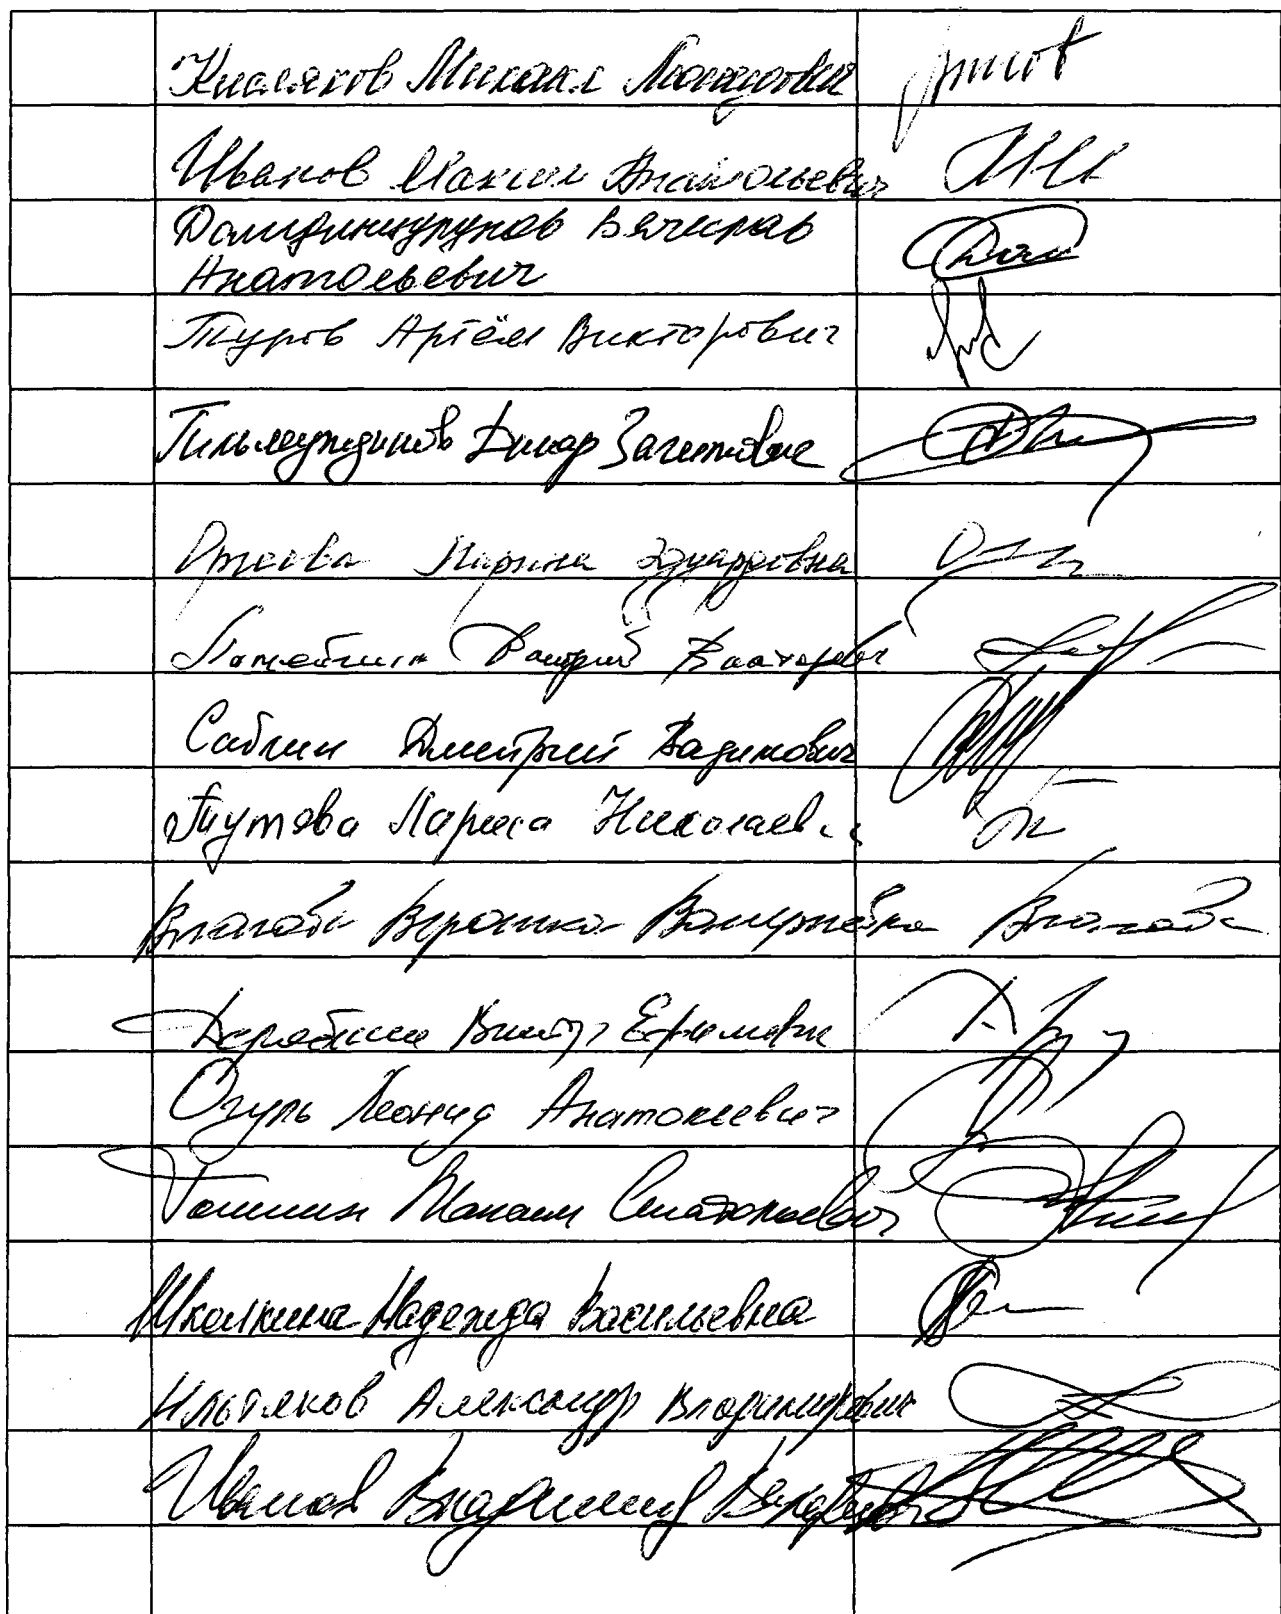 Кисляков Михаил Леонидович
Иванов Максим Анатольевич
Дамдинцурунов Вячеслав
Анатольевич
Туров Артём Викторович
Гильмутдинов Динар Загитович
Лариса Эдуардовна
Дмитрий Викторович
Саблин Дмитрий Вадимович
Тутова Лариса Николаевна
Власова Вероника Валерьевна Власова
Дерябкин Виктор Ефимович
Огуль Леонид Анатольевич
Топилин Максим Анатольевич
Школкина Надежда Васильевна
Ильтяков Александр Владимирович
Иванов Владимир Валерьевич